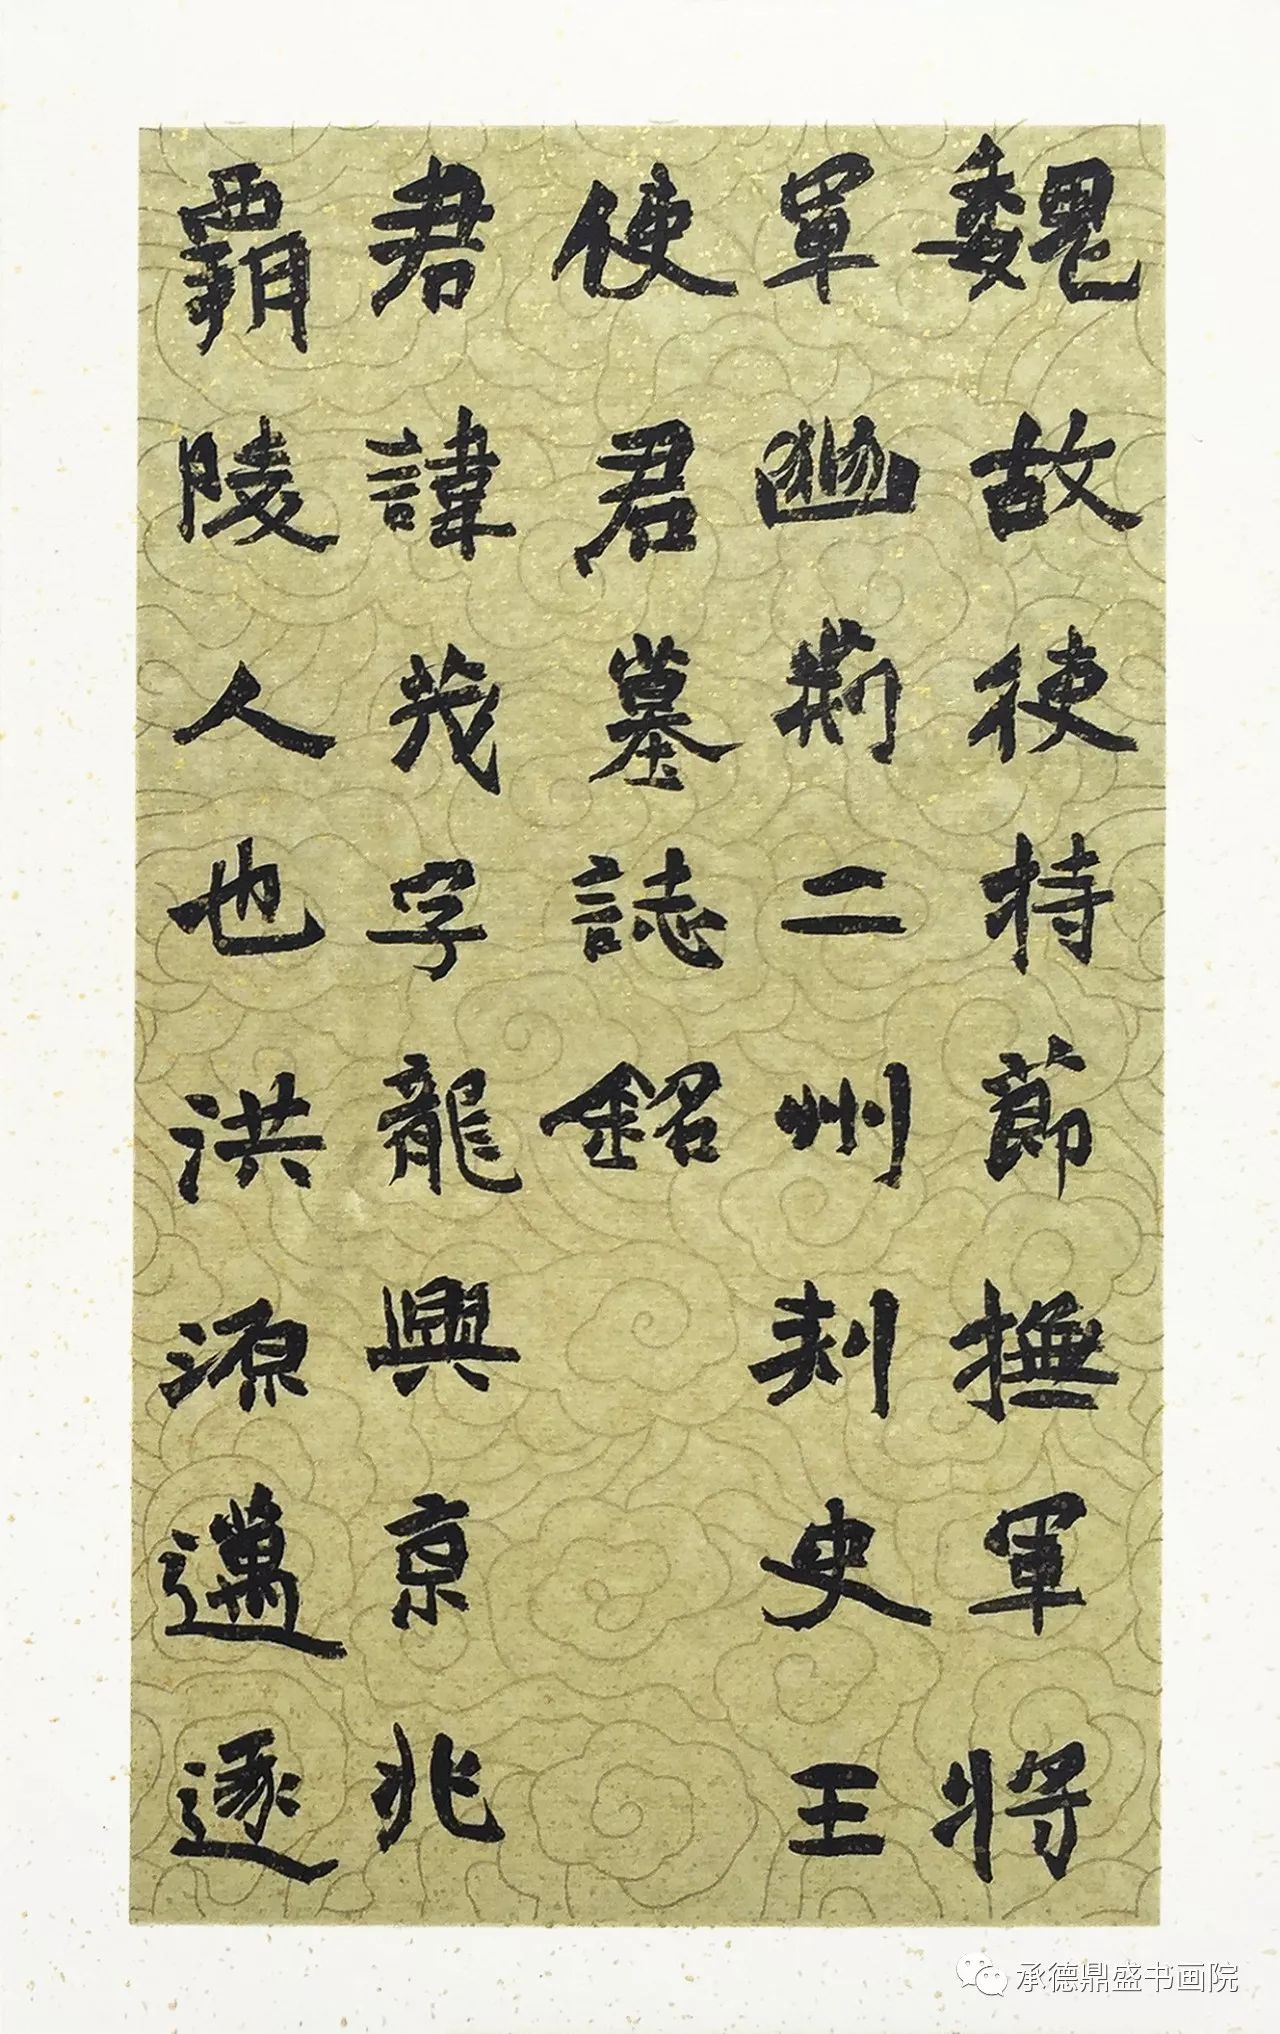 魏故使持節撫軍將
軍幽荊二州刺史王
使君墓誌銘
君諱茂字龍興京兆
霸陵人也洪源邁逐
承德鼎盛书画院